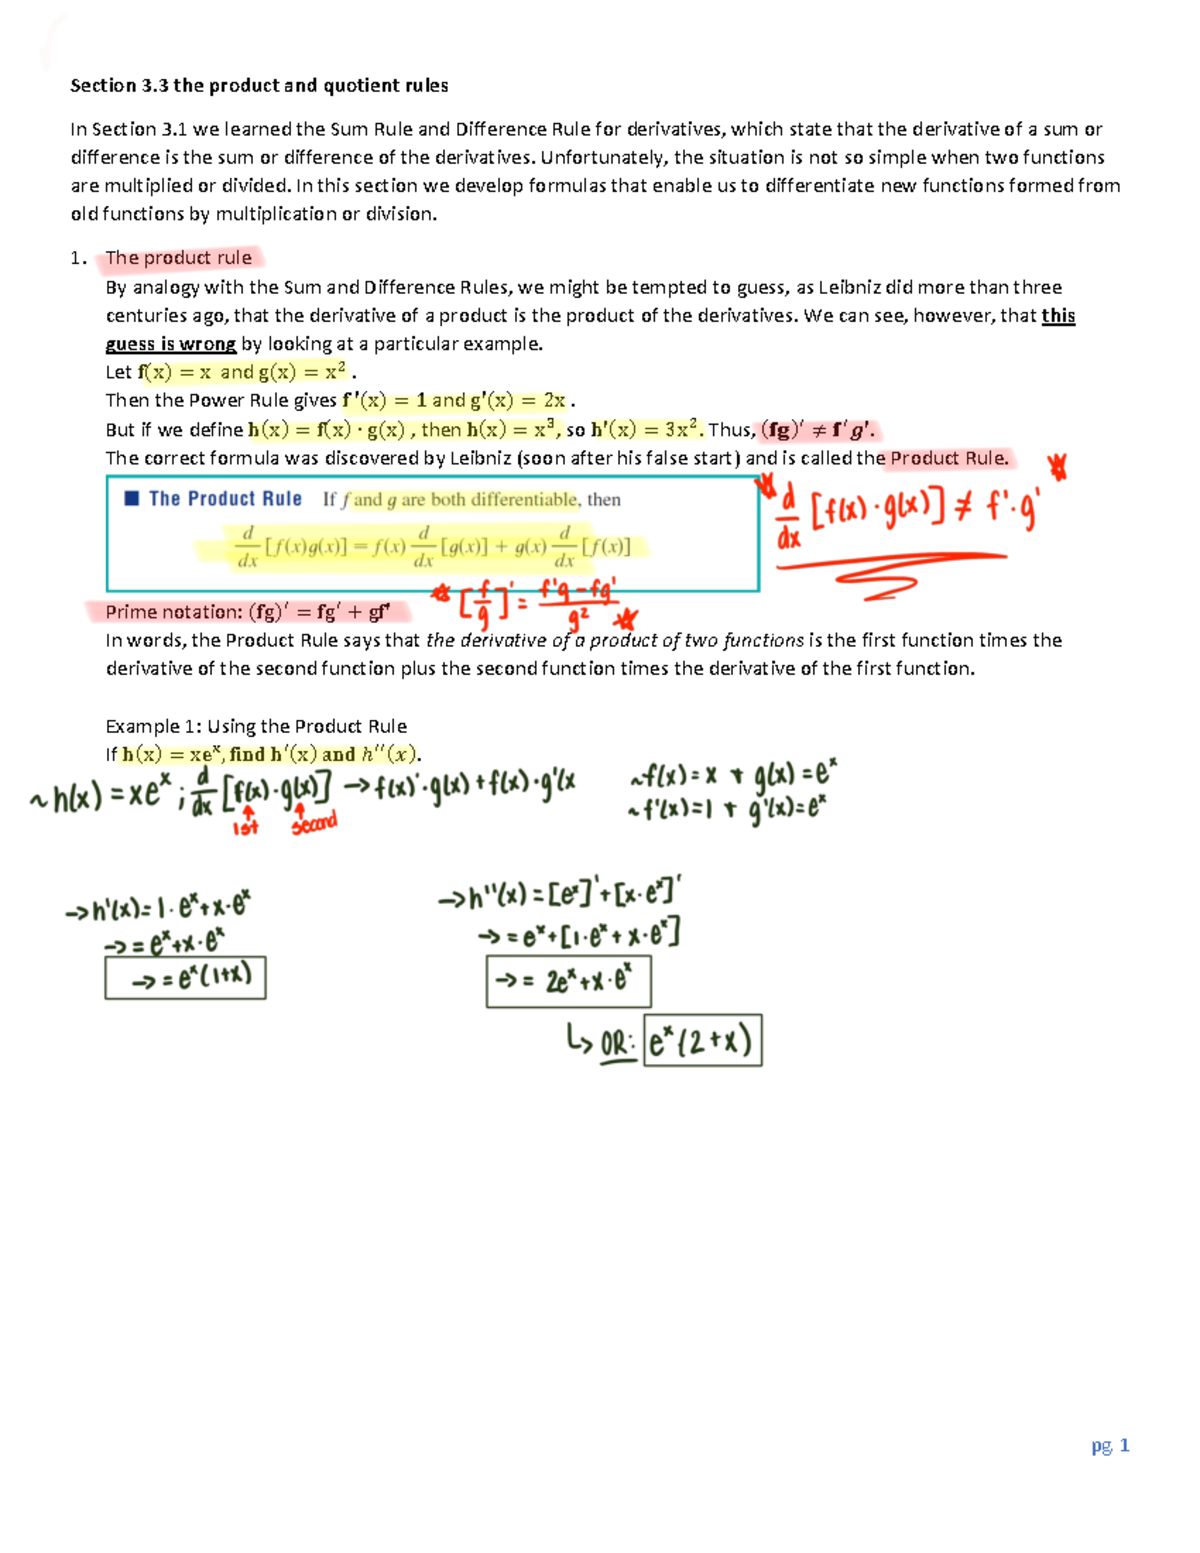 Section 3.3 the product and quotient rules
In Section 3.1 we learned the Sum Rule and Difference Rule for derivatives, which state that the derivative of a sum or
difference is the sum or difference of the derivatives. Unfortunately, the situation is not so simple when two functions
are multiplied or divided. In this section we develop formulas that enable us to differentiate new functions formed from
old functions by multiplication or division.
1. The product rule
By analogy with the Sum and Difference Rules, we might be tempted to guess, as Leibniz did more than three
centuries ago, that the derivative of a product is the product of the derivatives. We can see, however, that this
guess is wrong by looking at a particular example.
Let f(x) = x and g(x) = x² .
Then the Power Rule gives f'(x) = 1 and g'(x) = 2x .
But if we define h(x) = f(x) · g(x) , then h(x) = x³, so h'(x) = 3x². Thus, (fg)′ ≠ f′g′.
The correct formula was discovered by Leibniz (soon after his false start) and is called the Product Rule.
■ The Product Rule If f and g are both differentiable, then
d/dx [f(x)g(x)] = f(x) d/dx [g(x)] + g(x) d/dx [f(x)]
d/dx [f(x)·g(x)] ≠ f'·g'
[f/g]' = f'g-fg'/g²
Prime notation: (fg)′ = fg′ + gf′
In words, the Product Rule says that the derivative of a product of two functions is the first function times the
derivative of the second function plus the second function times the derivative of the first function.
Example 1: Using the Product Rule
If h(x) = xeˣ, find h′(x) and h′′(x).
~h(x) = xeˣ ; d/dx [f(x)·g(x)] → f(x)'·g(x)+f(x)·g'(x
1st second
~f(x)=x + g(x)=eˣ
~f'(x)=1 + g'(x)=eˣ
→h'(x)=1·eˣ+x·eˣ
→=eˣ+x·eˣ
→=eˣ(1+x)
→h''(x)=[eˣ]'+[x·eˣ]'
→=eˣ+[1·eˣ+x·eˣ]
→= 2eˣ+x·eˣ
↳ OR: eˣ(2+x)
pg. 1